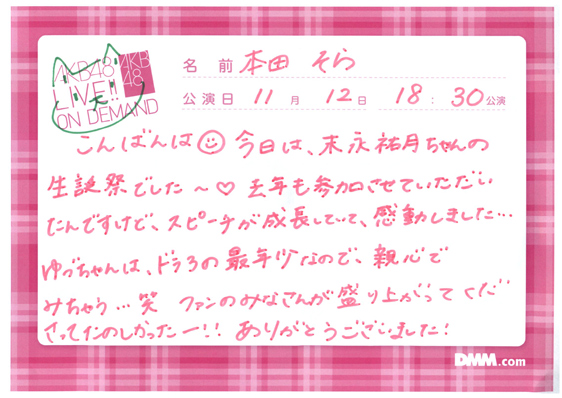 AKB48
LIVE!!
ON DEMAND
AKB
48
名前 本田 そら
公演日 11月 12日 18:30公演
こんばんは 今日は、末永祐月ちゃんの
生誕祭でした〜♡ 去年も参加させていただい
たんですけど、スピーチが成長していて、感動しました…
ゆづちゃんは、ドラ3の最年少なので、親心で
みちゃう…笑 ファンのみなさんが盛り上がってくだ
さってたのしかったー!! ありがとうございました!
DMM.com